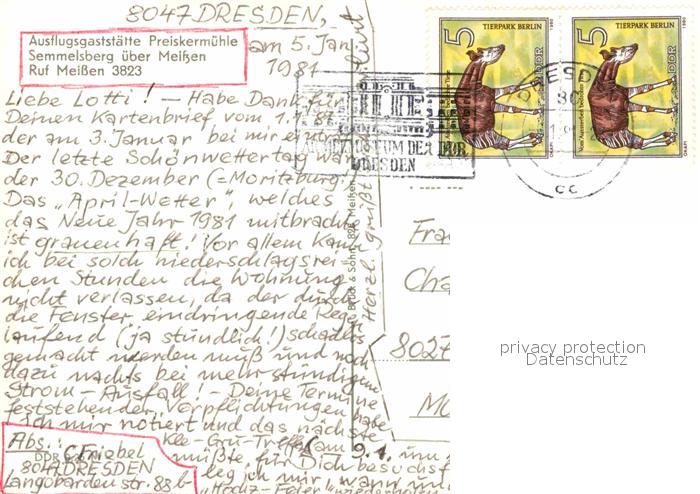 8047 DRESDEN,
am 5. Jan.
1981
Ausflugsgaststätte Preiskermühle
Semmelsberg über Meißen
Ruf Meißen 3823
Liebe Lotti! – Habe Dank für
Deinen Kartenbrief vom 1.1.81,
der am 3. Januar bei mir eintraf.
Der letzte Schönwettertag war
der 30. Dezember (= Moritzburg).
Das „April-Wetter", welches
das Neue Jahr 1981 mitbrachte
ist grauenhaft! Vor allem kann
ich bei solch niederschlagsrei-
chen Stunden die Wohnung
nicht verlassen, da der durch
die Fenster eindringende Regen
laufend (ja stündlich!)
gemacht werden muß und noch
dazu nachts bei mehrstündigem
Strom-Ausfall! – Deine Termine
feststehender Verpflichtungen habe
ich mir notiert und das nächste
Klee-Grü-Treffen (am 9.1.
müßte für Dich besuchs
leg ich mir wann und
„Hochz-Feier"
Abs.:
C. Friebel
DDR
8047 DRESDEN
Langobardenstr. 83 b
Herzl. grüßt
Kurt
Brück & Sohn, 825 Meißen
TIERPARK BERLIN
1980
5
DDR
Vom Aussterben bedrohte Tiere
OKAPI
TIERPARK BERLIN
1980
5
DDR
Vom Aussterben bedrohte Tiere
OKAPI
DRESDEN
80
cc
ARMEEMUSEUM DER DDR
DRESDEN
Fra
Cha
8027
privacy protection
Datenschutz